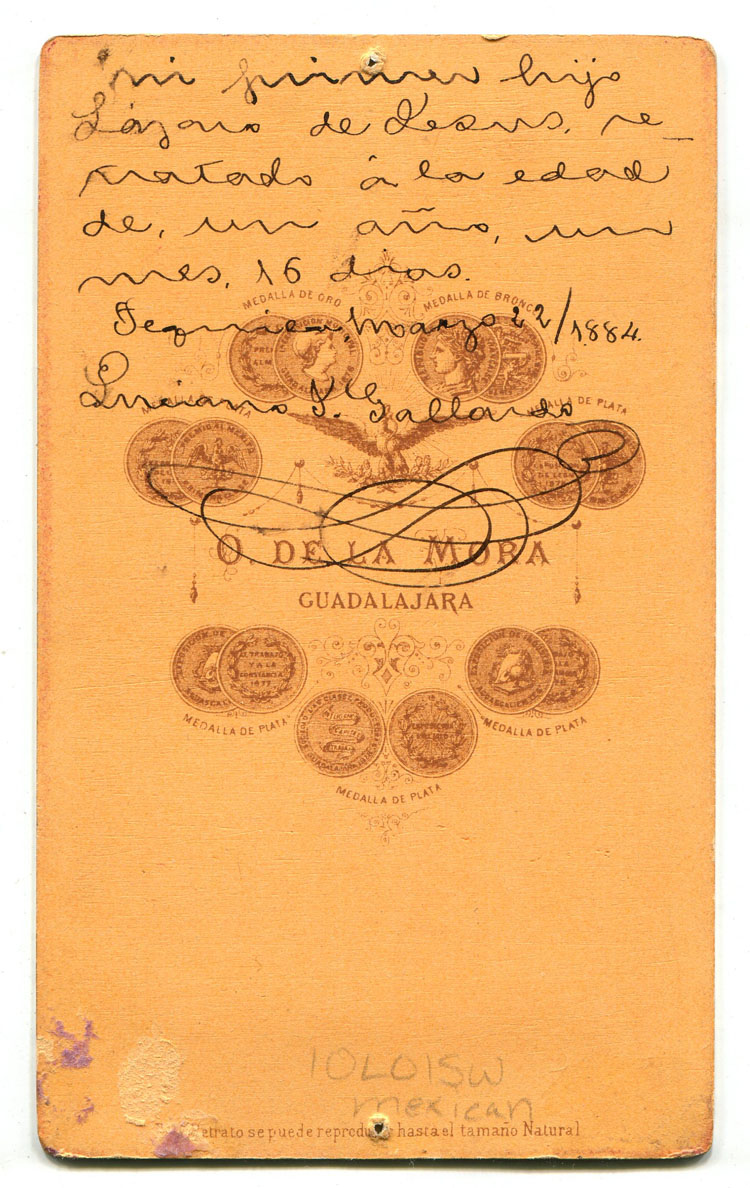 mi primer hijo
Lázaro de Jesus, re-
tratado á la edad
de, un año, un
mes, 16 dias.
MEDALLA DE ORO MEDALLA DE BRONCE
Marzo 22/1884.
Luciano J. Gallardo
MEDALLA DE PLATA
O. DE LA MORA
GUADALAJARA
EL TRABAJO
Y A LA
CONSTANCIA
1877
MEDALLA DE PLATA MEDALLA DE PLATA
MEDALLA DE PLATA
10L015W
mexican
Retrato se puede reproducir hasta el tamaño Natural